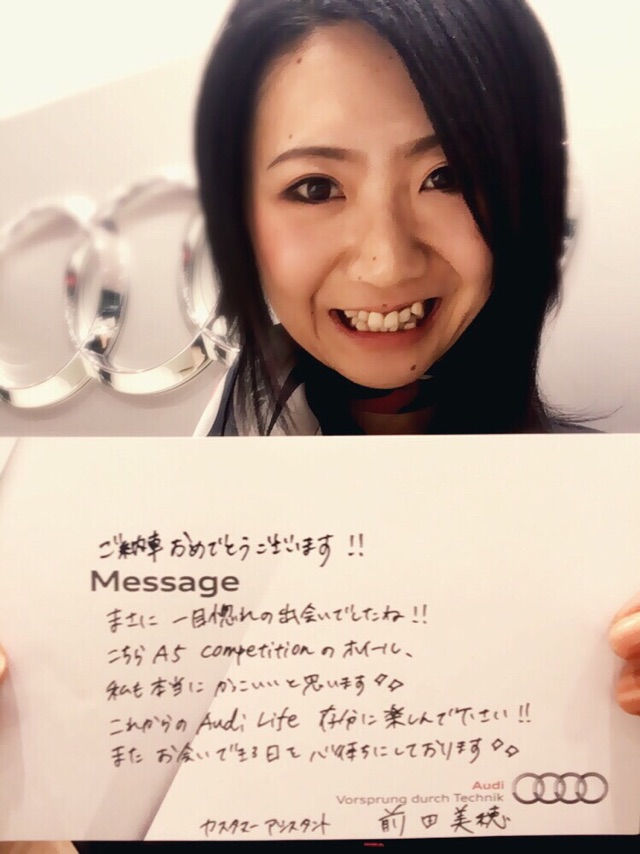 ご納車おめでとうございます!!
Message
まさに 一目惚れの出会いでしたね!!
こちら A5 competitionのホイール、
私も本当に かっこいいと思います◇◇
これからの Audi Life 存分に楽しんで下さい!!
また お会いできる日を 心待ちにしております◇◇
Audi
Vorsprung durch Technik
カスタマーアシスタント 前田美穂